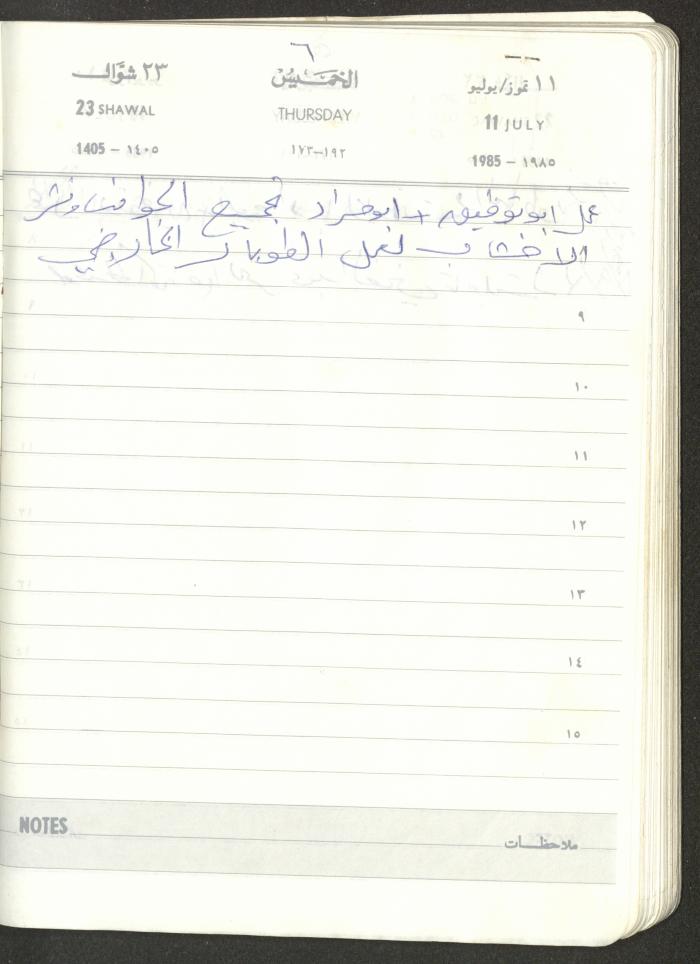 ٦
٢٣ شوَّال الخميس ١١ تموز/يوليو
23 SHAWAL THURSDAY 11 JULY
1405 – ١٤٠٥ ١٧٣–١٩٢ 1985 – ١٩٨٥
عمل ابو توفيق + ابو مراد تجميع الجوانب ونشر
الاخشاب لعمل الطوبار الخارجي
٩
١٠
١١
١٢
١٣
١٤
١٥
NOTES ملاحظـات